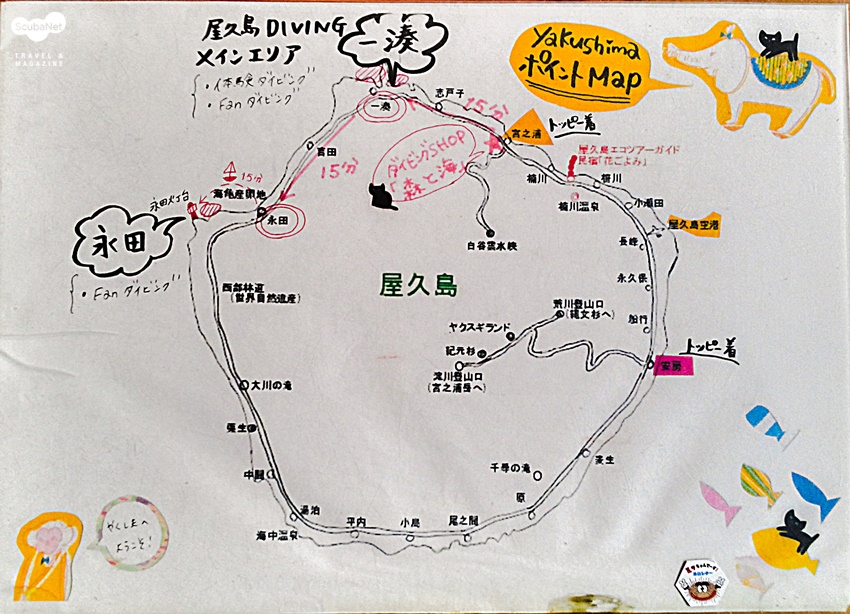 ScubaNet
TRAVEL &
MAGAZINE
屋久島 DIVING
メインエリア
・体験ダイビング
・Fan ダイビング
一湊
Yakushima
ポイント Map
志戸子
一湊
15分
トッピー着
宮之浦
屋久島エコツアーガイド
民宿「花ごよみ」
吉田
15分
ダイビングSHOP
「森と海」
楠川
椨川
楠川温泉
小瀬田
15分
海亀産卵地
永田灯台
永田
永田
・Fan ダイビング
屋久島空港
長峰
白谷雲水峡
永久保
屋久島
西部林道
(世界自然遺産)
荒川登山口
(縄文杉へ)
船行
ヤクスギランド
紀元杉
淀川登山口
(宮之浦岳へ)
トッピー着
安房
大川の滝
栗生
中間
千尋の滝
麦生
原
湯泊
海中温泉
平内
小島
尾之間
やくしまへ
ようこそ!